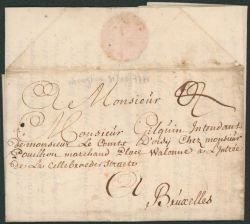 A Monsieur
Monsieur Gilquin Intendant
de monsieur Le Comte D'oisy Chez monsieur
Pouillon marchand Place Walonne a L'intrée
de La Cellebroeder Straete
A
Bruxelles